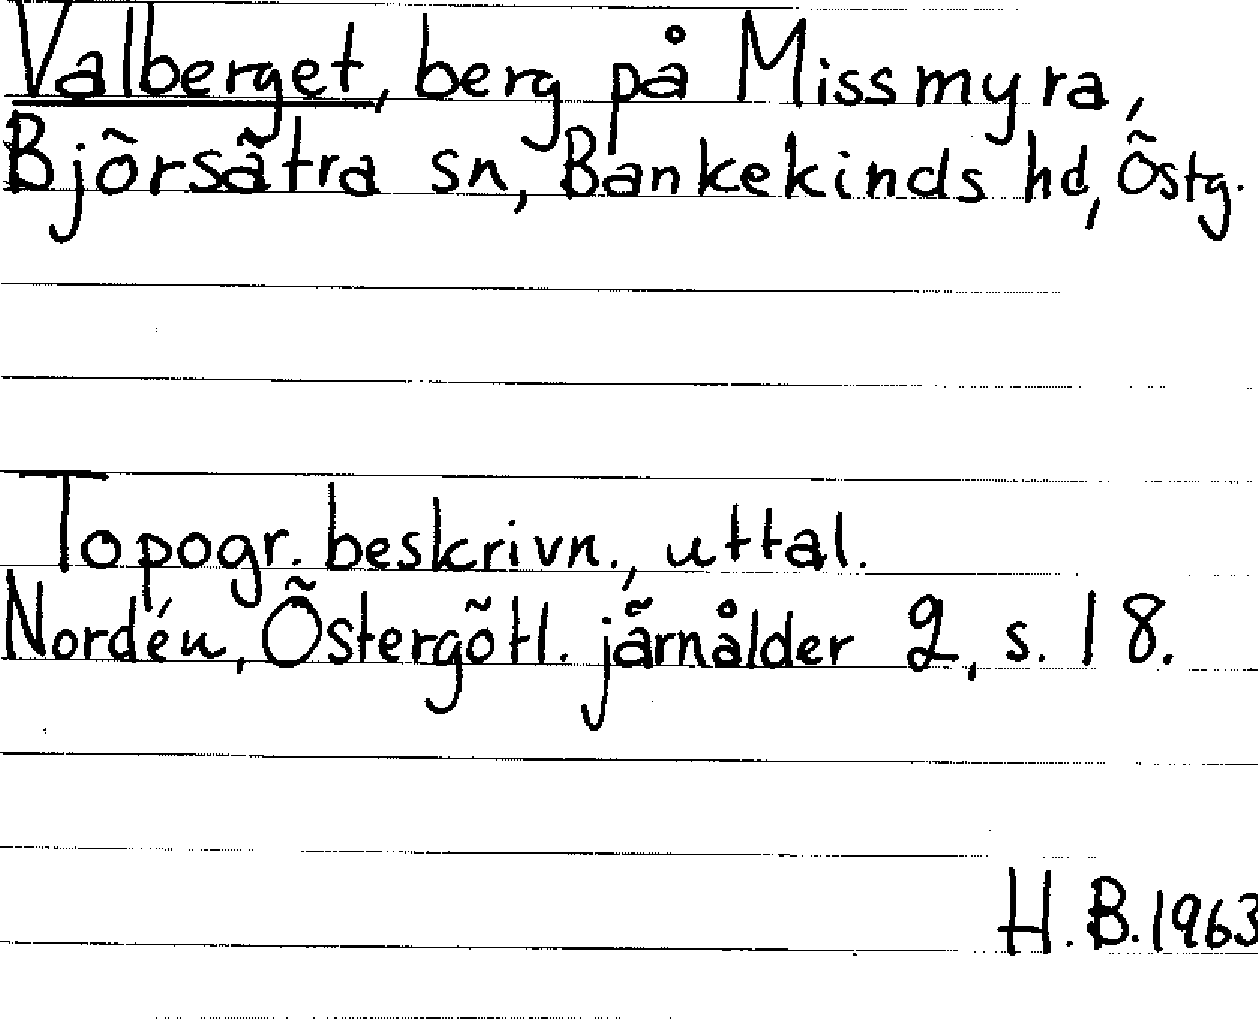 Valberget, berg på Missmyra,
Björsätra sn, Bankekinds hd, Östg.
Topogr. beskrivn., uttal.
Nordén, Östergötl. järnålder 2, s. 18.
H.B. 1963